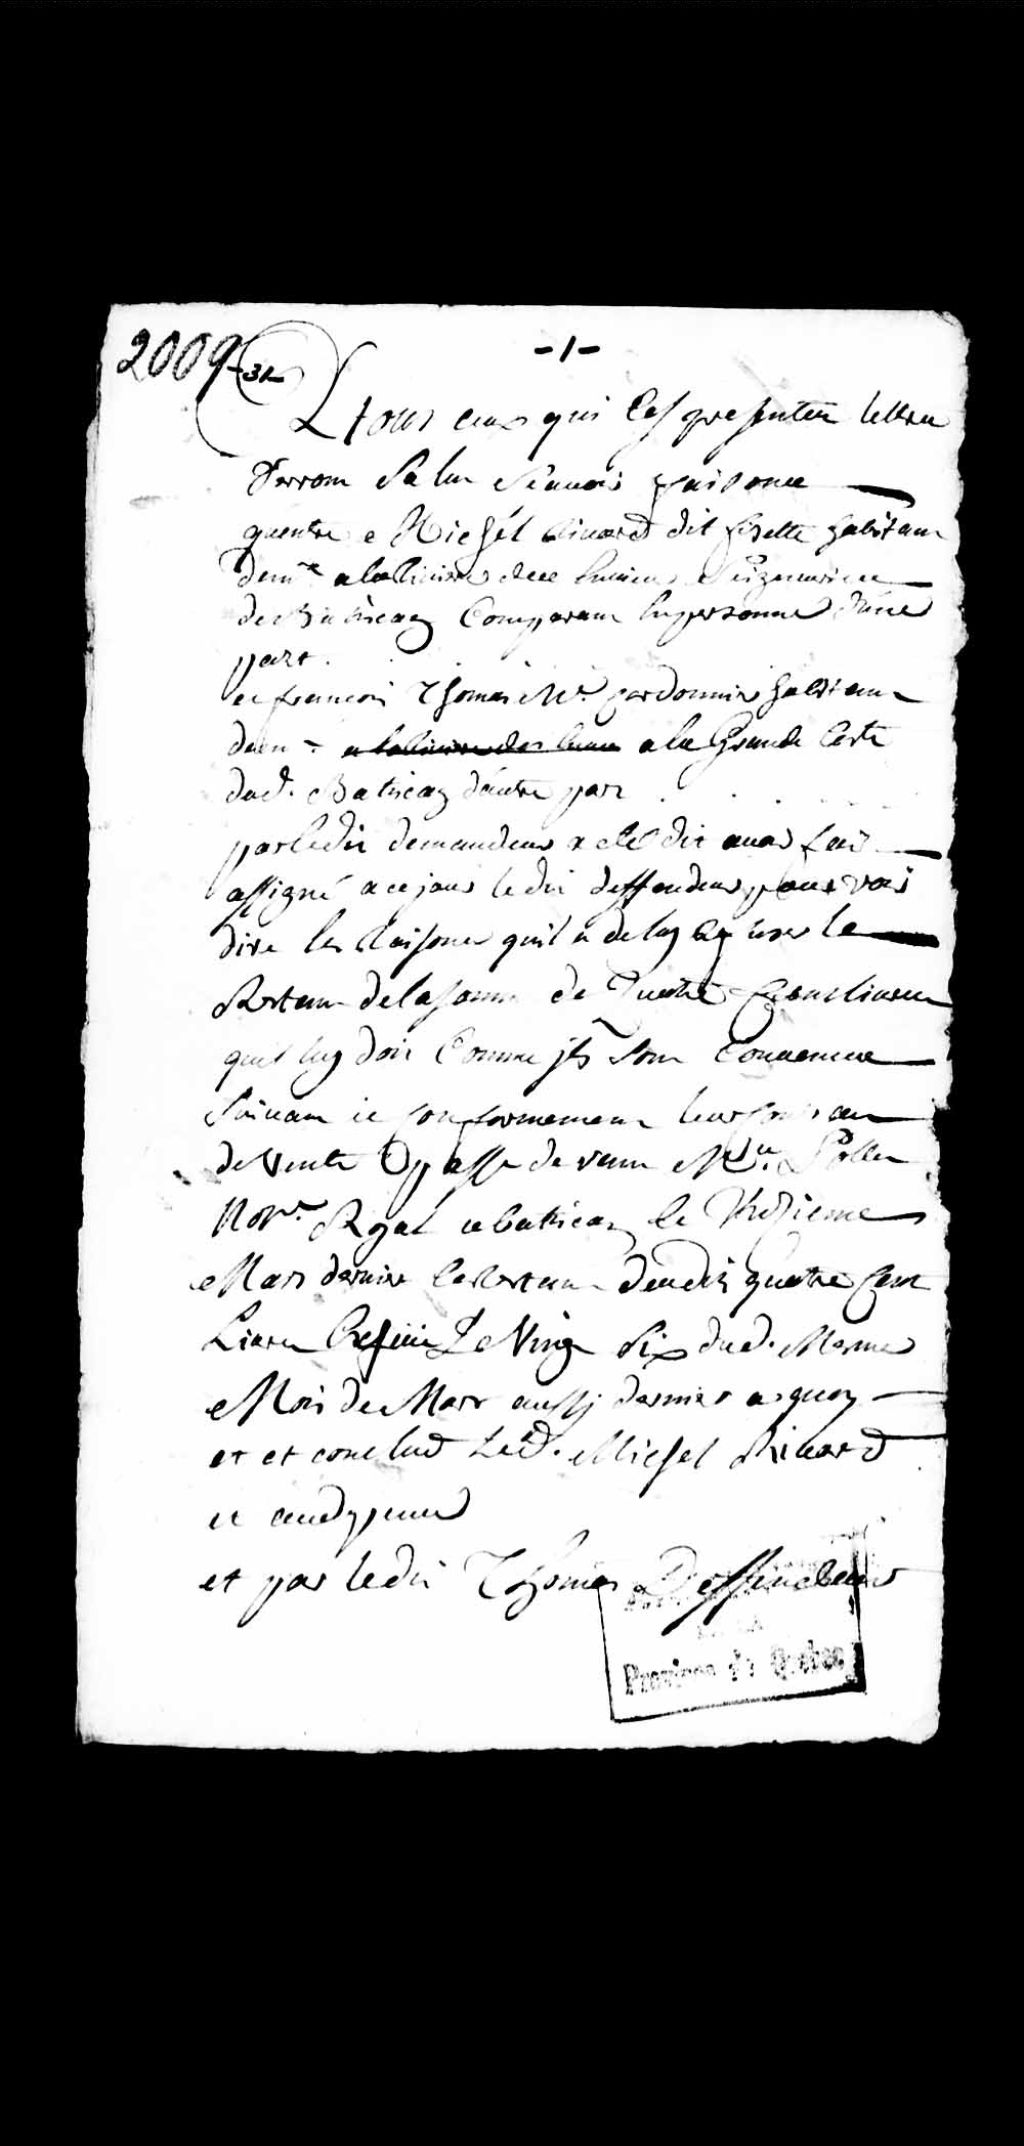 2009-32
-1-
A tous ceux qui Ces presentes lettre
Verron Salut Scauoir faisons
quentre Michel Riuard dit fisette habitant
dem.t a la Riuiere Seigneurie
de Batiscan Comparant En personne d'une
part.
et francois Thomas M.e Cordonnier habitant
dem a la Grande Coste
dud. Batiscan d'autre part
par ledit demandeur a eté dit auoir fait
assigné a ce jour le dit deffendeur pour voir
dire les Raisons quil a de luy le
Restant de la somme de quatre Cent liures
quil luy doit Comme jls Sont Conuenue
Suiuant et Conformement leur
de Vente passé devant M.e Pollet
Not.re Royal a batiscan le Treizieme
Mars dernier le Restant desdits quatre Cent
Liures le Vingt Six dud. Mesme
Mois de Mars aussy dernier a quoy
et et conclud Led. Michel Riuard
et aux dépens
et par ledit Thomas Deffendeur
Province de Quebec